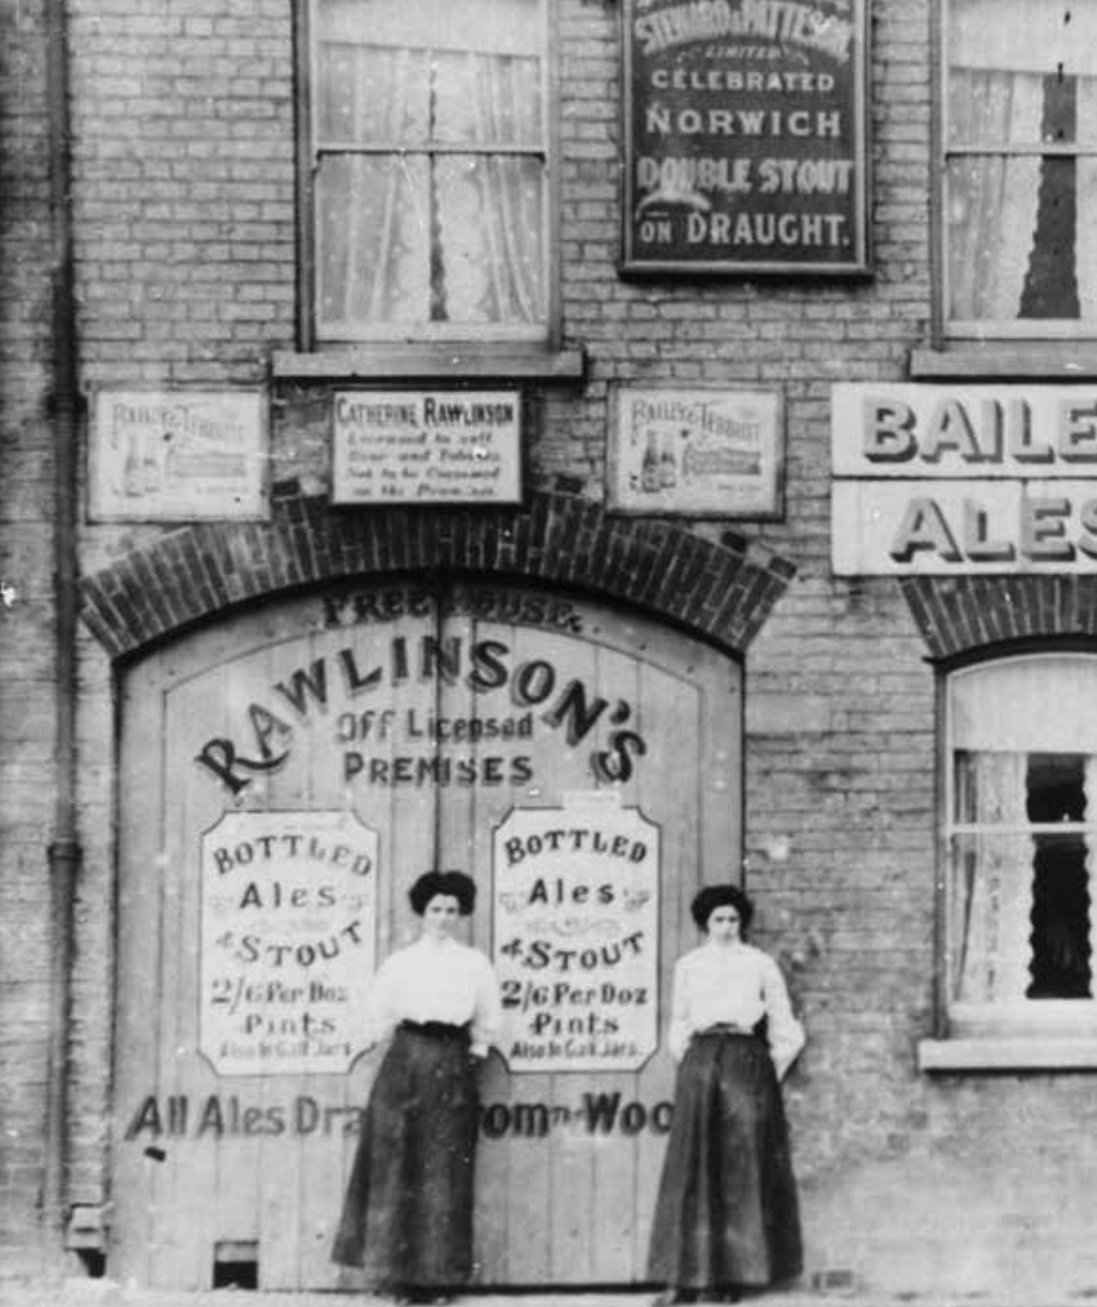 STEWARD & PATTESON
LIMITED
CELEBRATED
NORWICH
DOUBLE STOUT
ON DRAUGHT.
BAILEY & TEBBUTT
CATHERINE RAWLINSON
Licensed to sell
Beer and Tobacco
Not to be Consumed
on the Premises
BAILEY & TEBBUTT
BAILE
ALES
FREE HOUSE.
RAWLINSON'S
Off Licensed
PREMISES
BOTTLED
Ales
& STOUT
2/6 Per Doz
Pints
Also In Gall. Jars
BOTTLED
Ales
& STOUT
2/6 Per Doz
Pints
Also In Gall. Jars.
All Ales Dra om The Woo